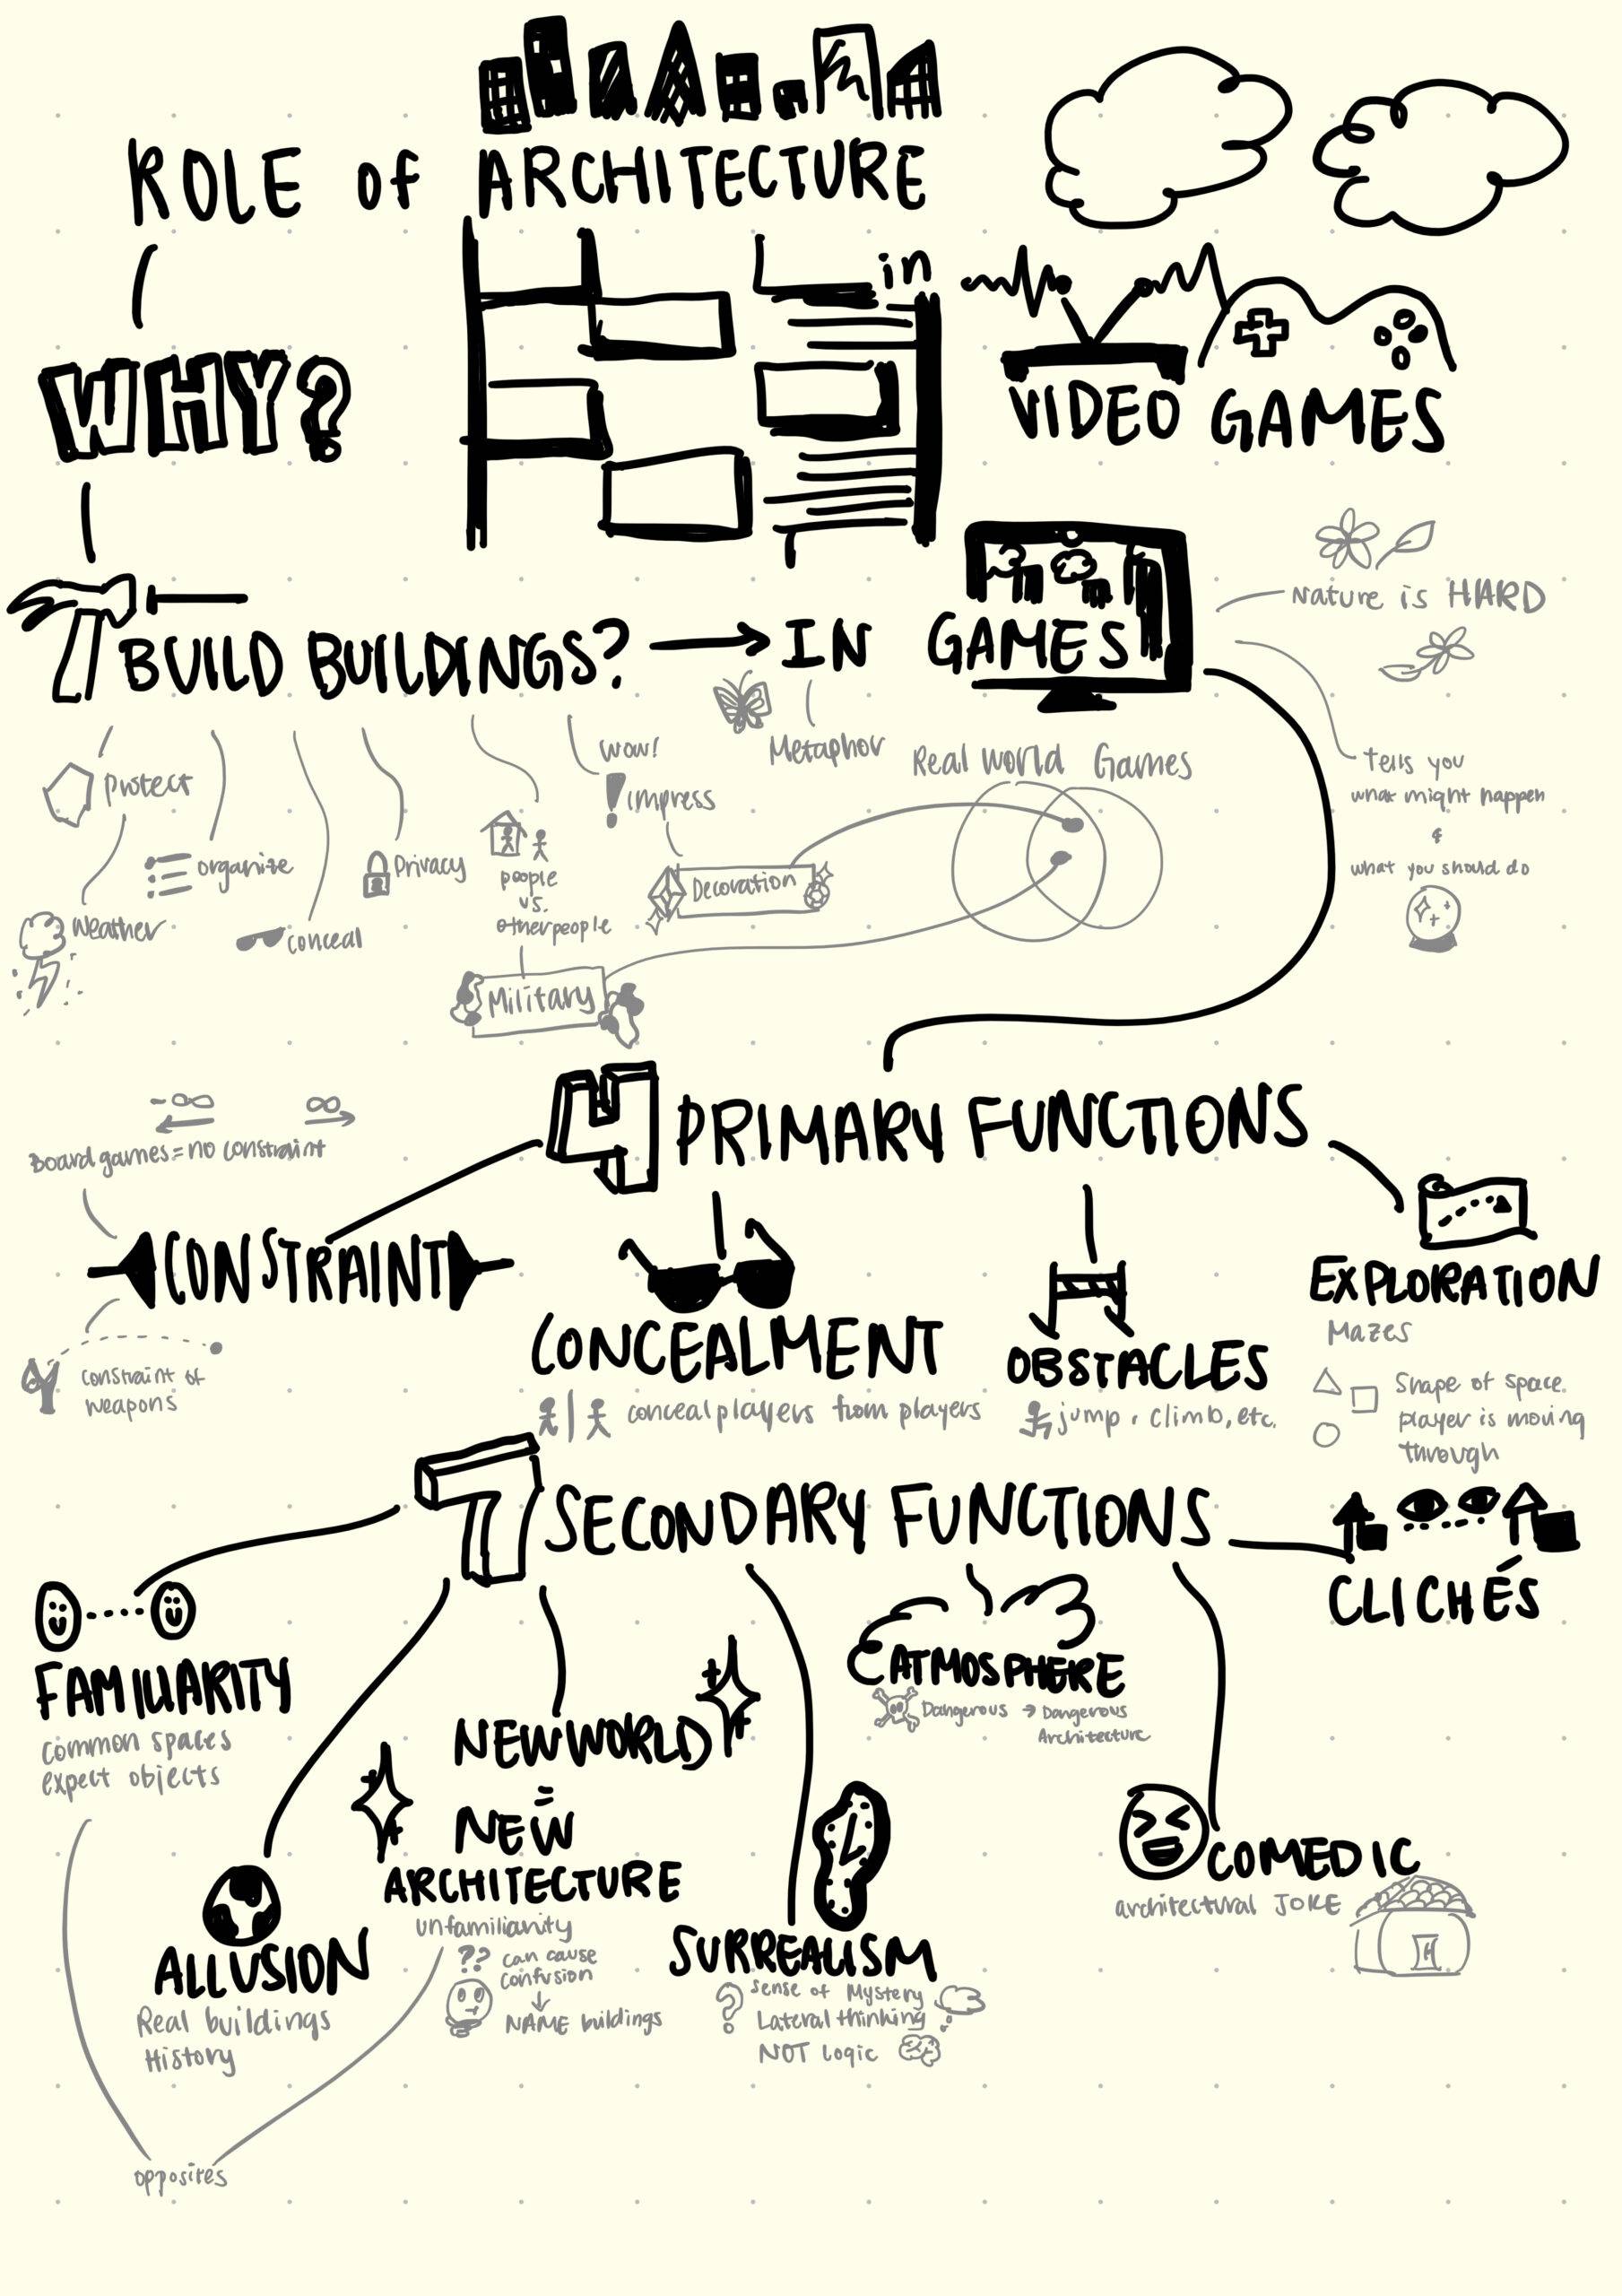 ROLE of ARCHITECTURE
in
VIDEO GAMES
WHY?
BUILD BUILDINGS? → IN GAMES
Nature is HARD
Tells you
what might happen
&
what you should do
Protect
Weather
organize
conceal
Privacy
people
vs.
other people
Military
Wow!
impress
Decoration
Metaphor
Real World Games
4 PRIMARY FUNCTIONS
-∞ ∞
Board games = no constraint
CONSTRAINT
constraint of
weapons
CONCEALMENT
conceal players from players
OBSTACLES
jump, climb, etc.
EXPLORATION
Mazes
Shape of space
player is moving
through
7 SECONDARY FUNCTIONS
FAMILIARITY
common spaces
expect objects
ALLUSION
Real buildings
History
NEW WORLD
=
NEW
ARCHITECTURE
unfamilianity
?? can cause
confusion
↓
NAME buildings
opposites
SURREALISM
? Sense of Mystery
Lateral thinking
NOT Logic
ATMOSPHERE
Dangerous → Dangerous
Architecture
COMEDIC
architectural JOKE
CLICHÉS